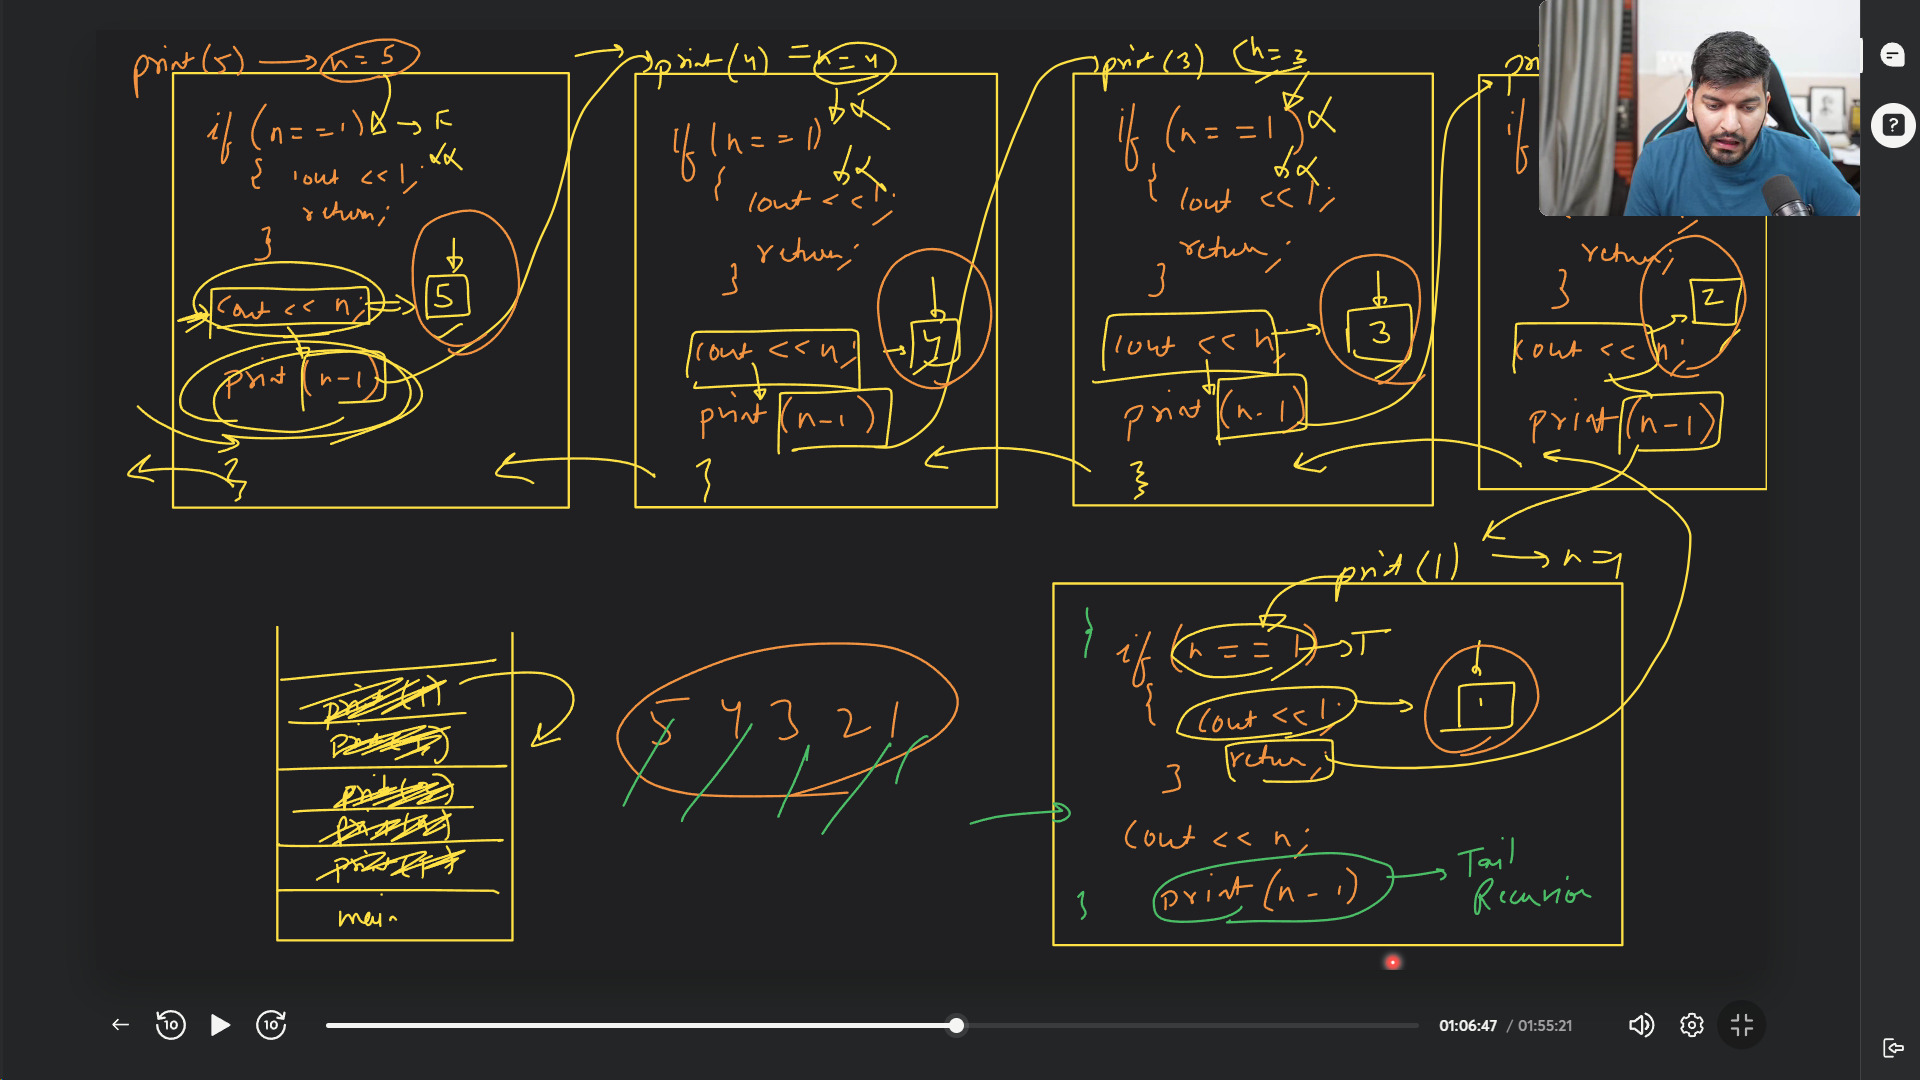 print(5) → n = 5
if (n == 1) → F
{ cout << 1;
return;
}
cout << n; ⇒ 5
print (n-1)
}
print(4) = n = 4
if (n == 1)
{ cout << 1;
return;
}
cout << n; → 4
print (n-1)
}
print(3) n = 3
if (n == 1)
{ cout << 1;
return;
}
cout << n; → 3
print (n-1)
}
if
return;
}
cout << n; 2
print (n-1)
print(1) → n = 1
} if (n == 1) → T
{ cout << 1; → 1
return;
}
cout << n;
print (n-1) → Tail
Recursion
}
print(1)
main
5 4 3 2 1
10
10
01:06:47 / 01:55:21
?